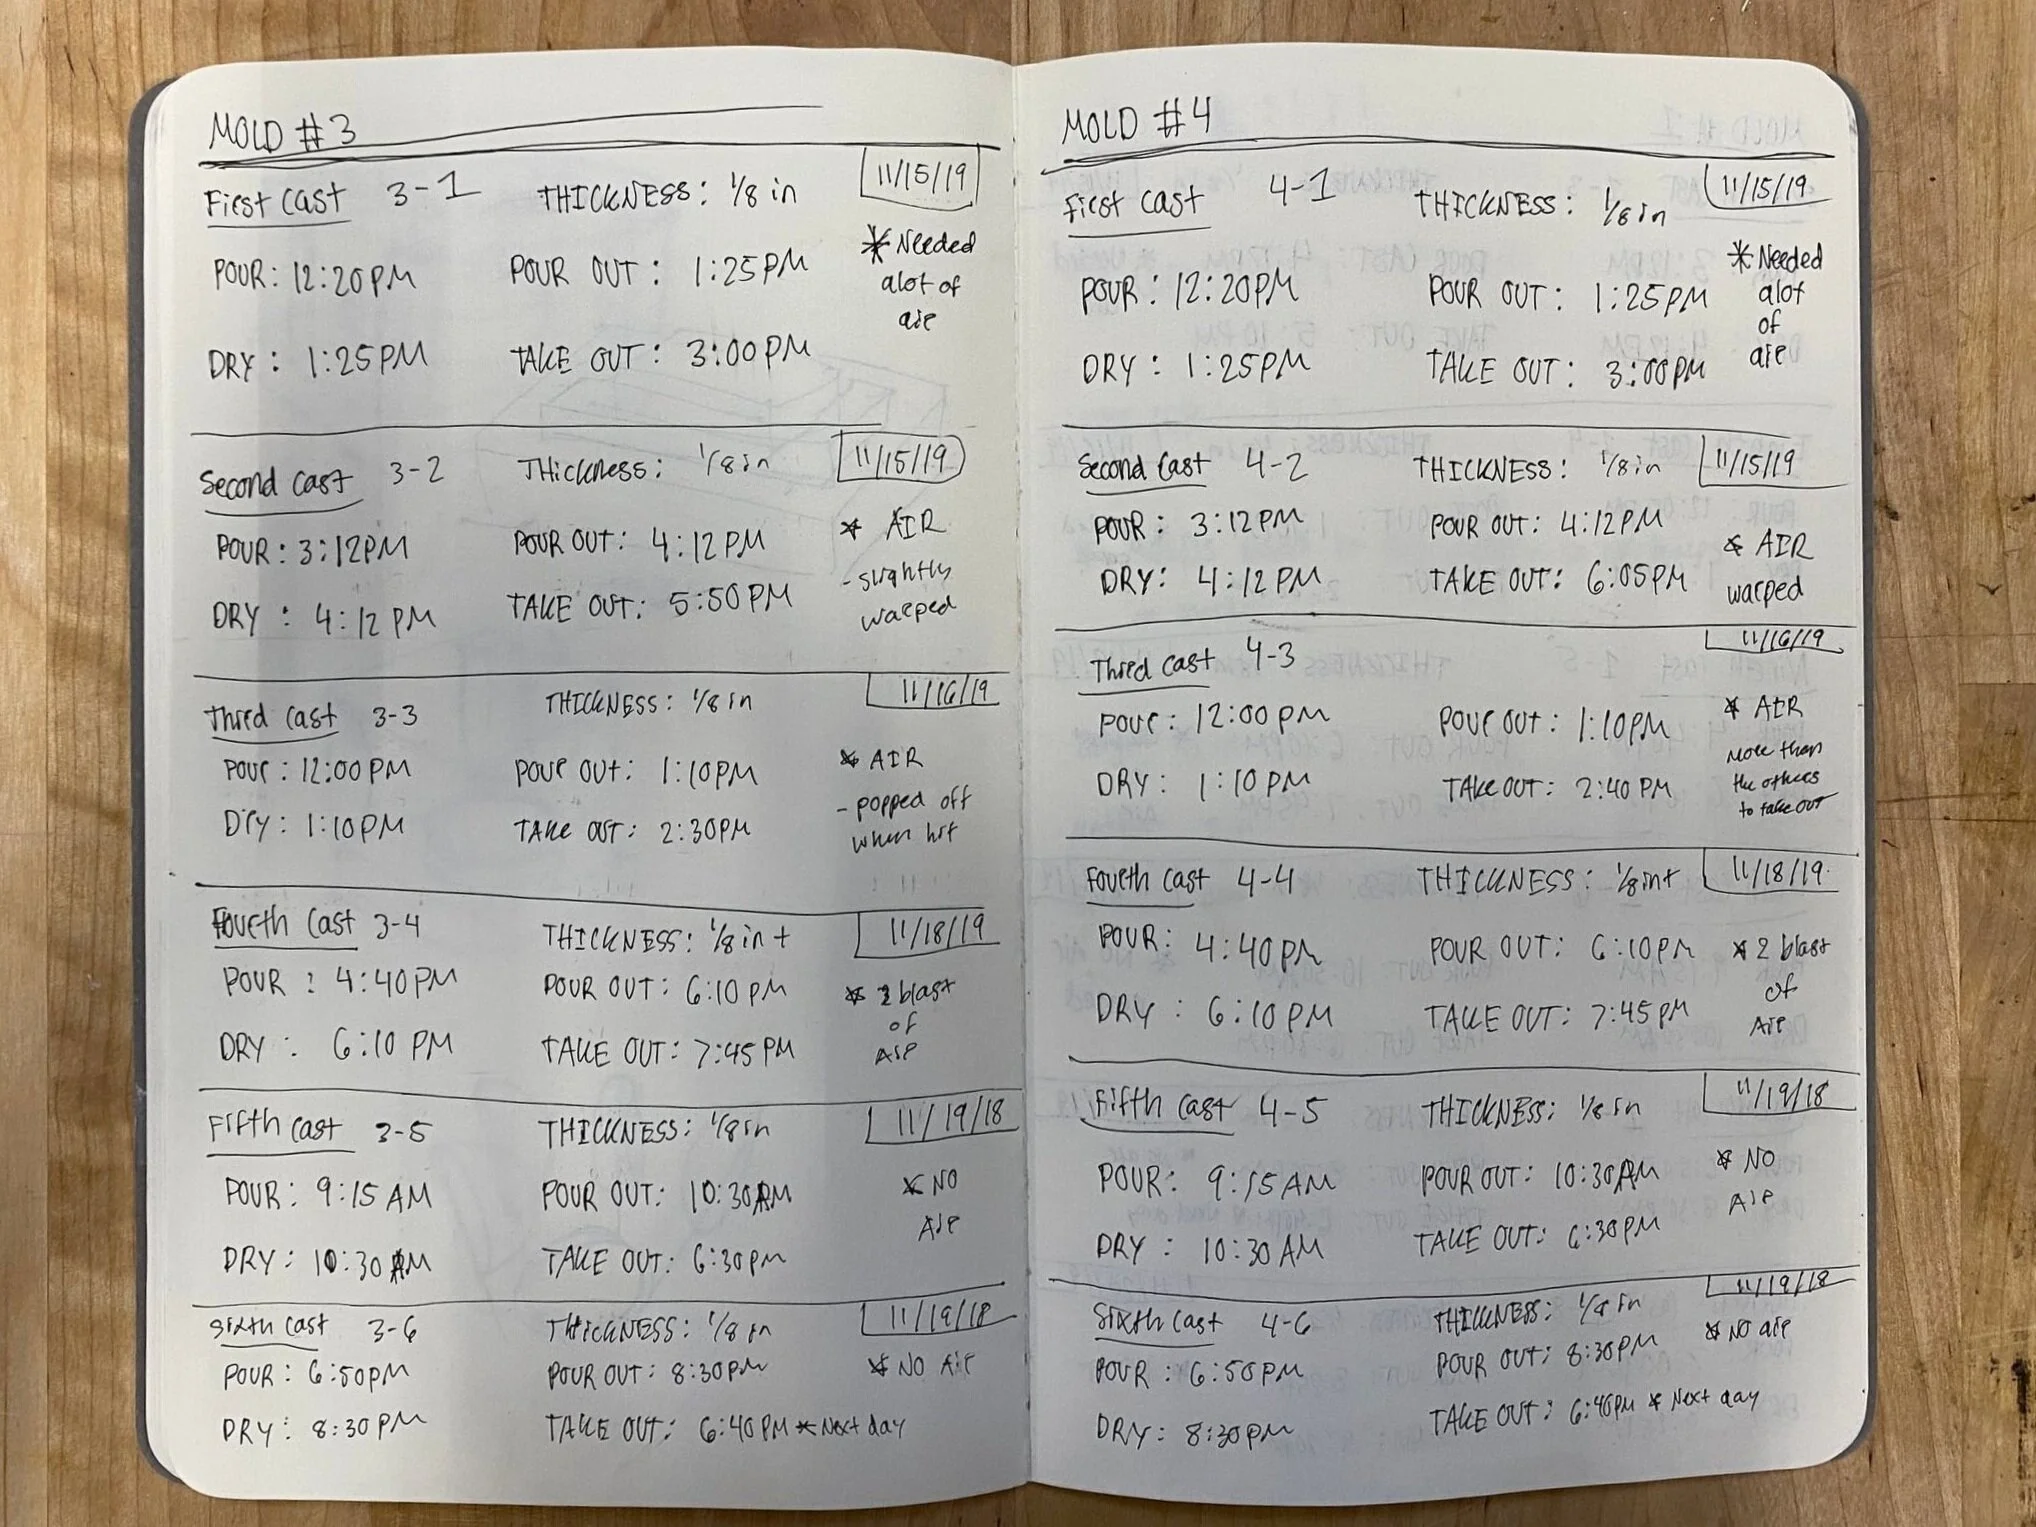 MOLD #3
First Cast 3-1 THICKNESS: 1/8 in 11/15/19
POUR: 12:20PM POUR OUT: 1:25PM * Needed
alot of
air
DRY: 1:25PM TAKE OUT: 3:00PM
Second Cast 3-2 THickness: 1/8 in 11/15/19
POUR: 3:12PM POUR OUT: 4:12PM * AIR
- slightly
warped
DRY: 4:12PM TAKE OUT: 5:50PM
Third Cast 3-3 THICKNESS: 1/8 in 11/16/19
Pour: 12:00PM POUR OUT: 1:10PM * AIR
- popped off
when hit
Dry: 1:10PM TAKE OUT: 2:30PM
Fourth Cast 3-4 THICKNESS: 1/8 in + 11/18/19
POUR: 4:40PM POUR OUT: 6:10PM * 2 blast
of
Air
DRY: 6:10 PM TAKE OUT: 7:45 PM
Fifth Cast 3-5 THICKNESS: 1/8 in 11/19/18
POUR: 9:15 AM POUR OUT: 10:30AM * NO
Air
DRY: 10:30 AM TAKE OUT: 6:30pm
Sixth Cast 3-6 THICKNESS: 1/8 in 11/19/18
POUR: 6:50PM POUR OUT: 8:30PM * NO Air
DRY: 8:30PM TAKE OUT: 6:40PM * Next day
MOLD #4
First Cast 4-1 THICKNESS: 1/8 in 11/15/19
POUR: 12:20PM POUR OUT: 1:25PM * Needed
alot
of
air
DRY: 1:25PM TAKE OUT: 3:00PM
Second Cast 4-2 THICKNESS: 1/8 in 11/15/19
POUR: 3:12PM POUR OUT: 4:12PM * AIR
warped
DRY: 4:12PM TAKE OUT: 6:05PM
Third Cast 4-3 11/16/19
Pour: 12:00PM POUR OUT: 1:10PM * AIR
More than
the others
to take out
DRY: 1:10PM TAKE OUT: 2:40 PM
Fourth Cast 4-4 THICKNESS: 1/8 in+ 11/18/19
POUR: 4:40PM POUR OUT: 6:10PM * 2 blast
of
Air
DRY: 6:10PM TAKE OUT: 7:45PM
Fifth Cast 4-5 THICKNESS: 1/8 in 11/19/18
POUR: 9:15AM POUR OUT: 10:30AM * NO
Air
DRY: 10:30 AM TAKE OUT: 6:30PM
Sixth Cast 4-6 THICKNESS: 1/8 in 11/19/18
POUR: 6:50PM POUR OUT: 8:30PM * NO air
DRY: 8:30PM TAKE OUT: 6:40PM * Next day